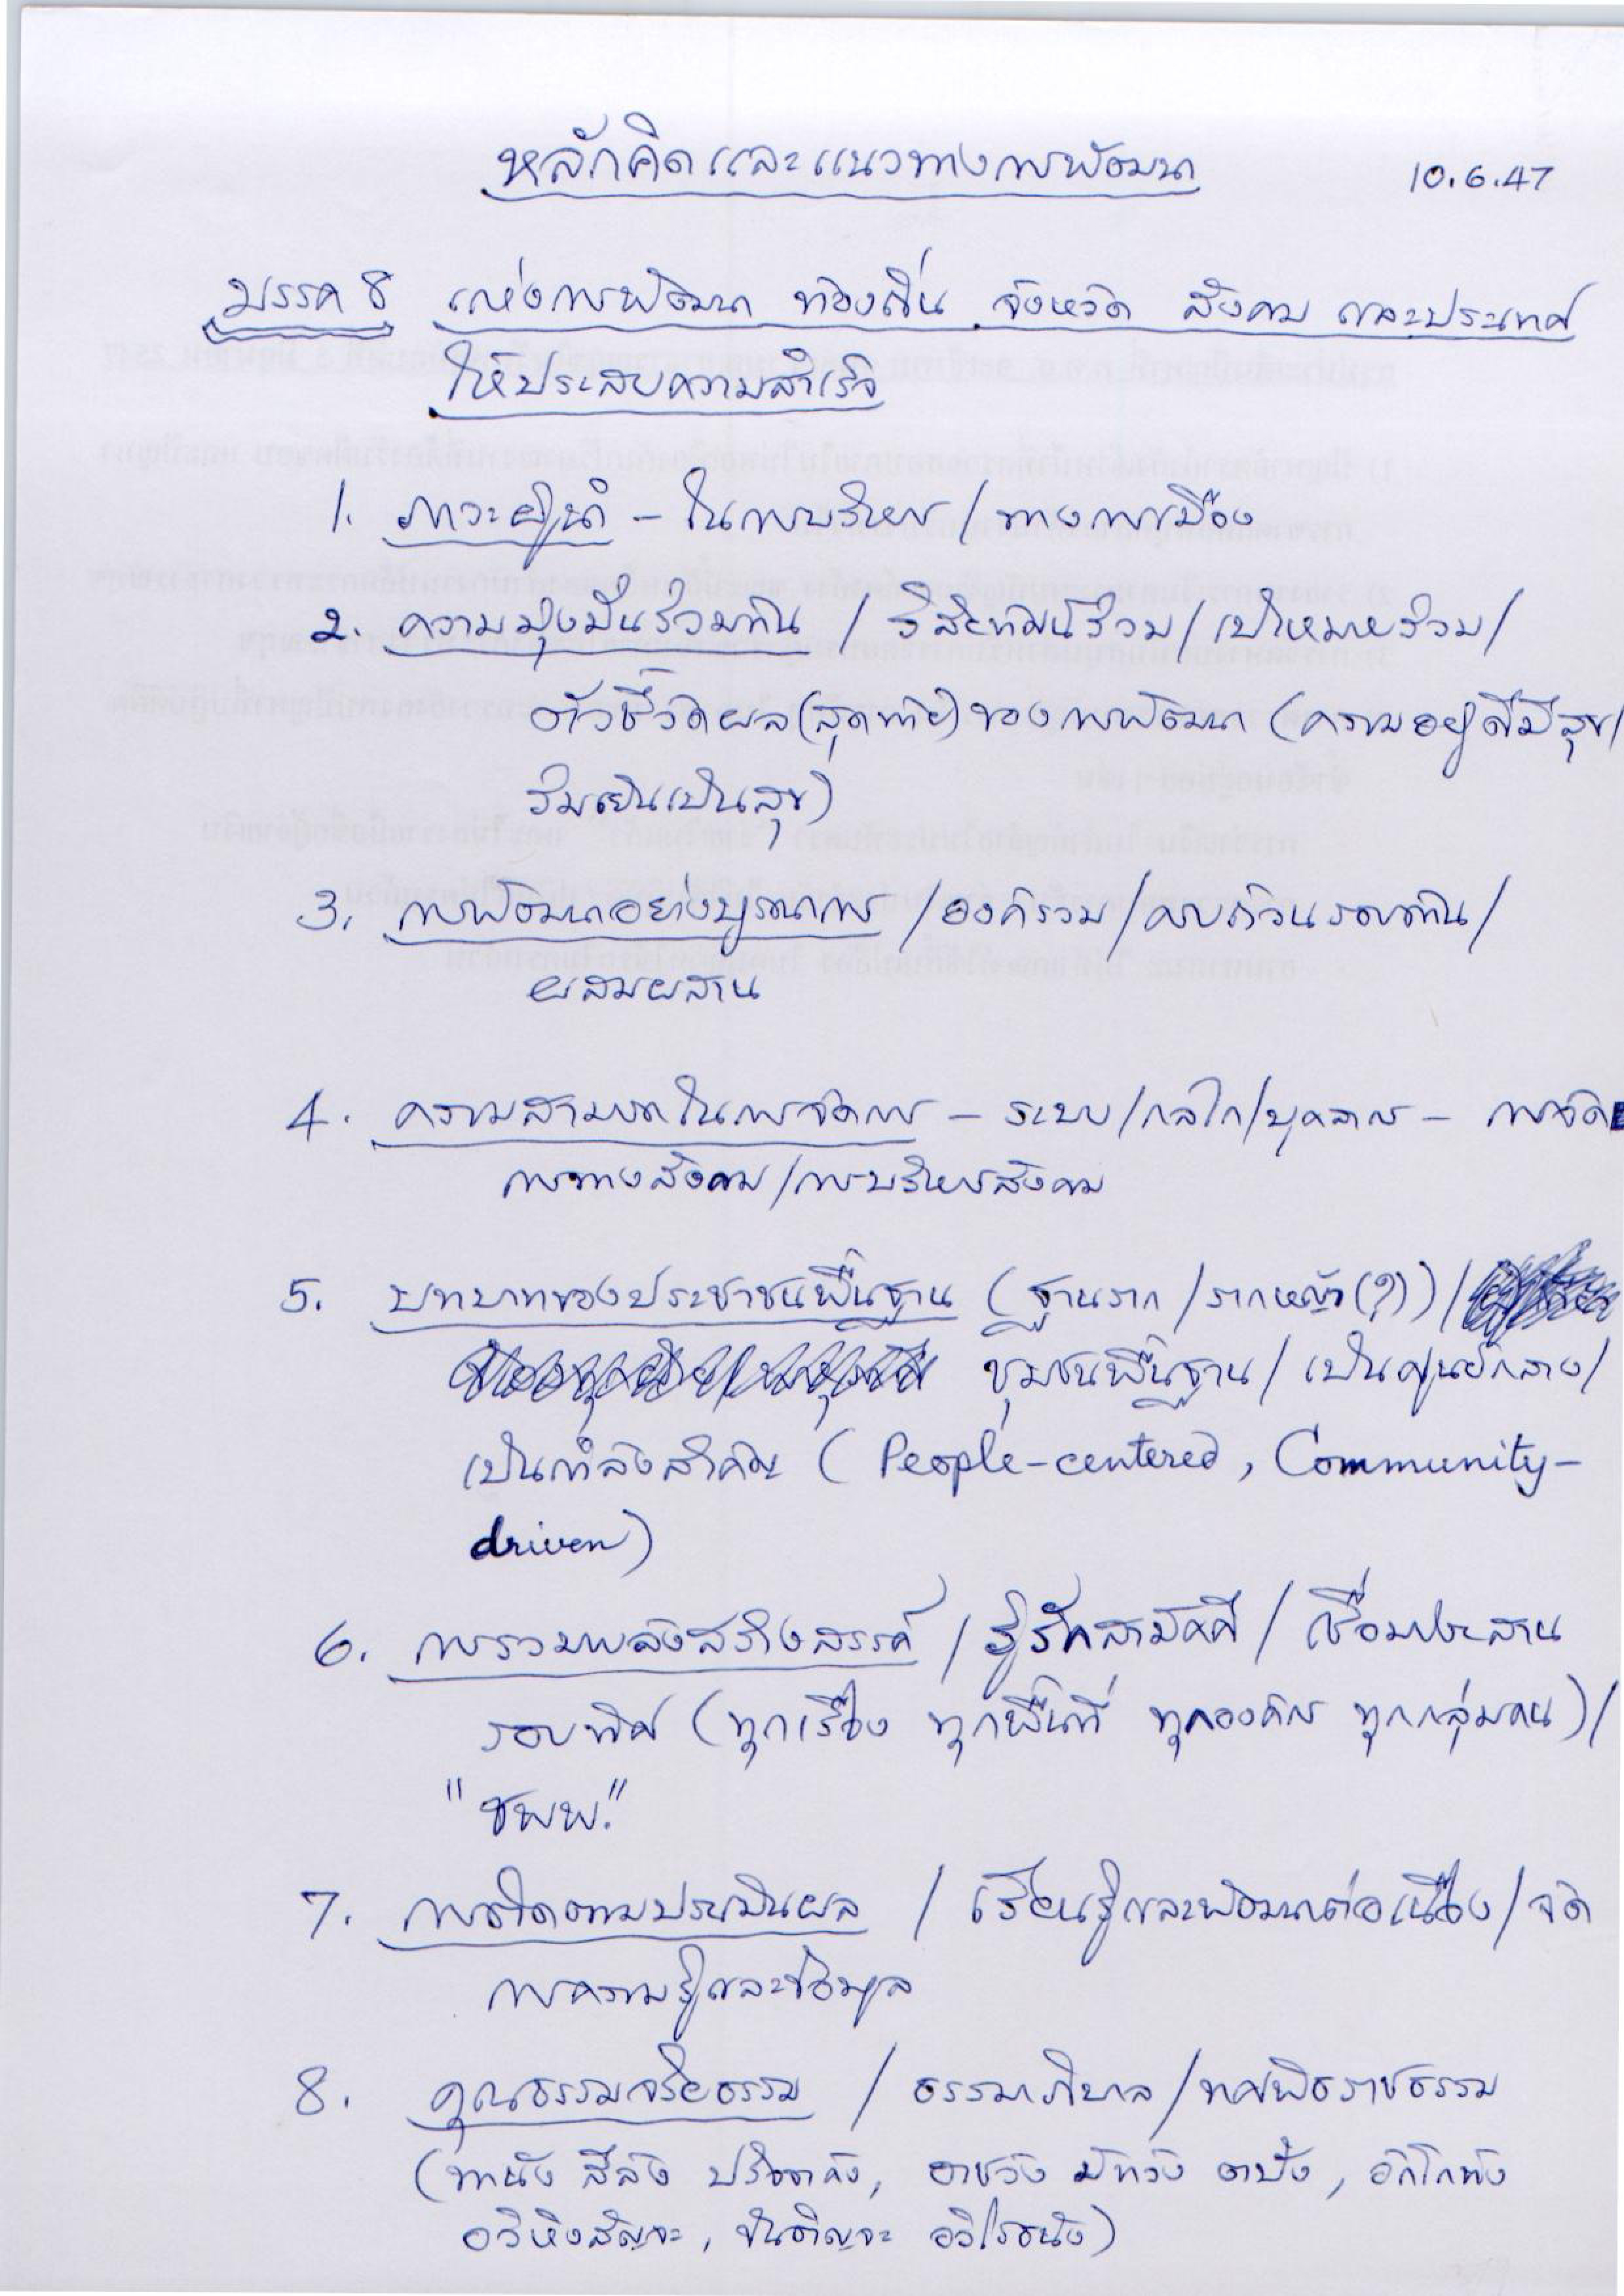 หลักคิดและแนวทางการพัฒนา 10.6.47
มรรค 8 แห่งการพัฒนา ท้องถิ่น จังหวัด สังคม และประเทศ
ให้ประสบความสำเร็จ
1. ภาวะผู้นำ – ในการบริหาร / ทางการเมือง
2. ความมุ่งมั่นร่วมกัน / วิสัยทัศน์ร่วม / เป้าหมายร่วม /
ตัวชี้วัดผล(สุดท้าย)ของการพัฒนา (ความอยู่ดีมีสุข/
ร่มเย็นเป็นสุข)
3. การพัฒนาอย่างบูรณาการ / องค์รวม / ครบถ้วนรอบด้าน /
ผสมผสาน
4. ความสามารถในการจัดการ – ระบบ/กลไก/บุคลากร – การจัด
การทางสังคม / การบริหารสังคม
5. บทบาทของประชาชนพื้นฐาน (ฐานราก / รากหญ้า(?)) /
ชุมชนพื้นฐาน / เป็นศูนย์กลาง /
เป็นกำลังสำคัญ (People-centered, Community-
driven)
6. การรวมพลังสร้างสรรค์ / รู้รักสามัคคี / เชื่อมประสาน
รอบทิศ (ทุกเรื่อง ทุกพื้นที่ ทุกองค์กร ทุกกลุ่มคน) /
"ชพพ."
7. การติดตามประเมินผล / เรียนรู้และพัฒนาต่อเนื่อง / จัด
การความรู้และข้อมูล
8. คุณธรรมจริยธรรม / ธรรมาภิบาล / ทศพิธราชธรรม
(ทานัง สีลัง ปริจจาคัง, อาชวัง มัททวัง ตปัง, อักโกธัง
อวิหิงสัญจะ, ขันติญจะ อวิโรธนัง)